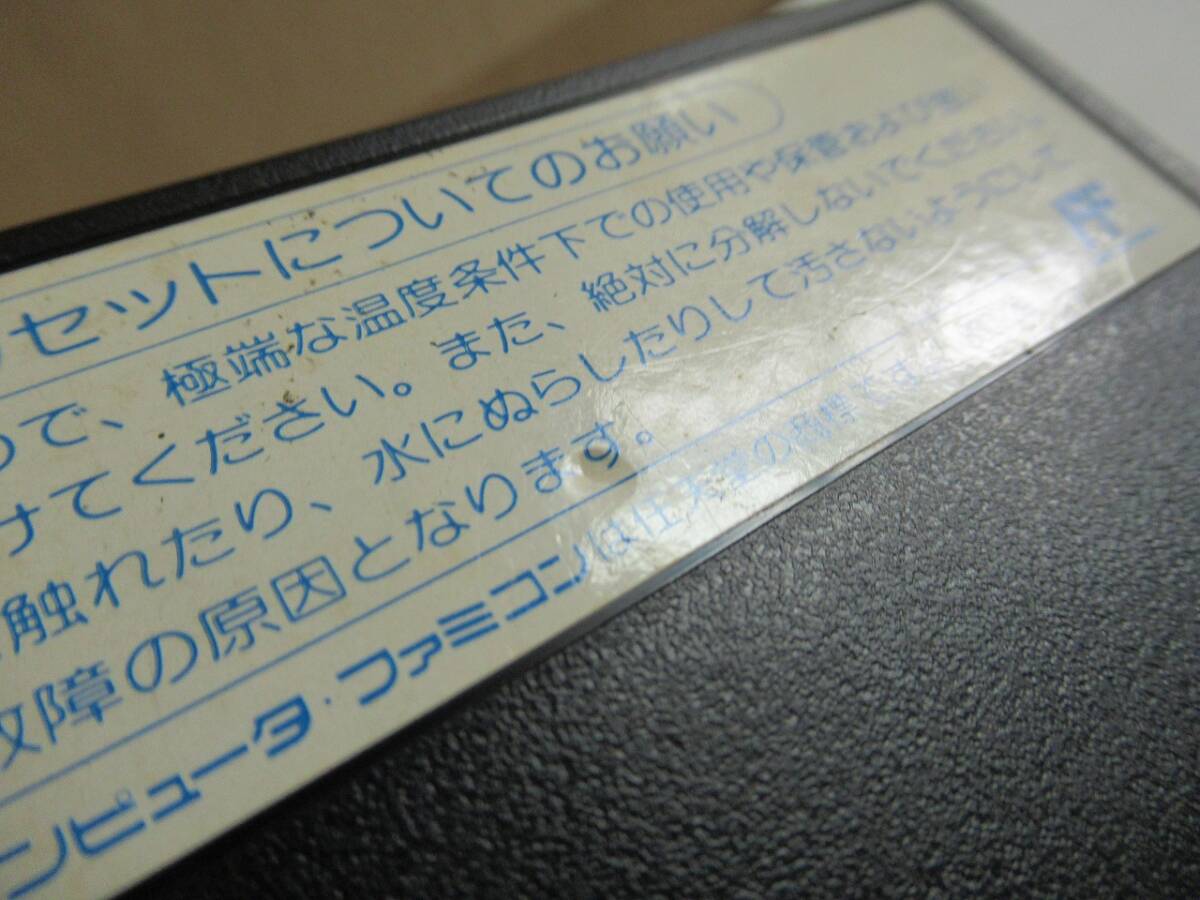 セットについてのお願い
で、極端な温度条件下での使用や保管および強い
けてください。また、絶対に分解しないでください。
触れたり、水にぬらしたりして汚さないようにして
故障の原因となります。
ンピュータ・ファミコンは任天堂の商標です。